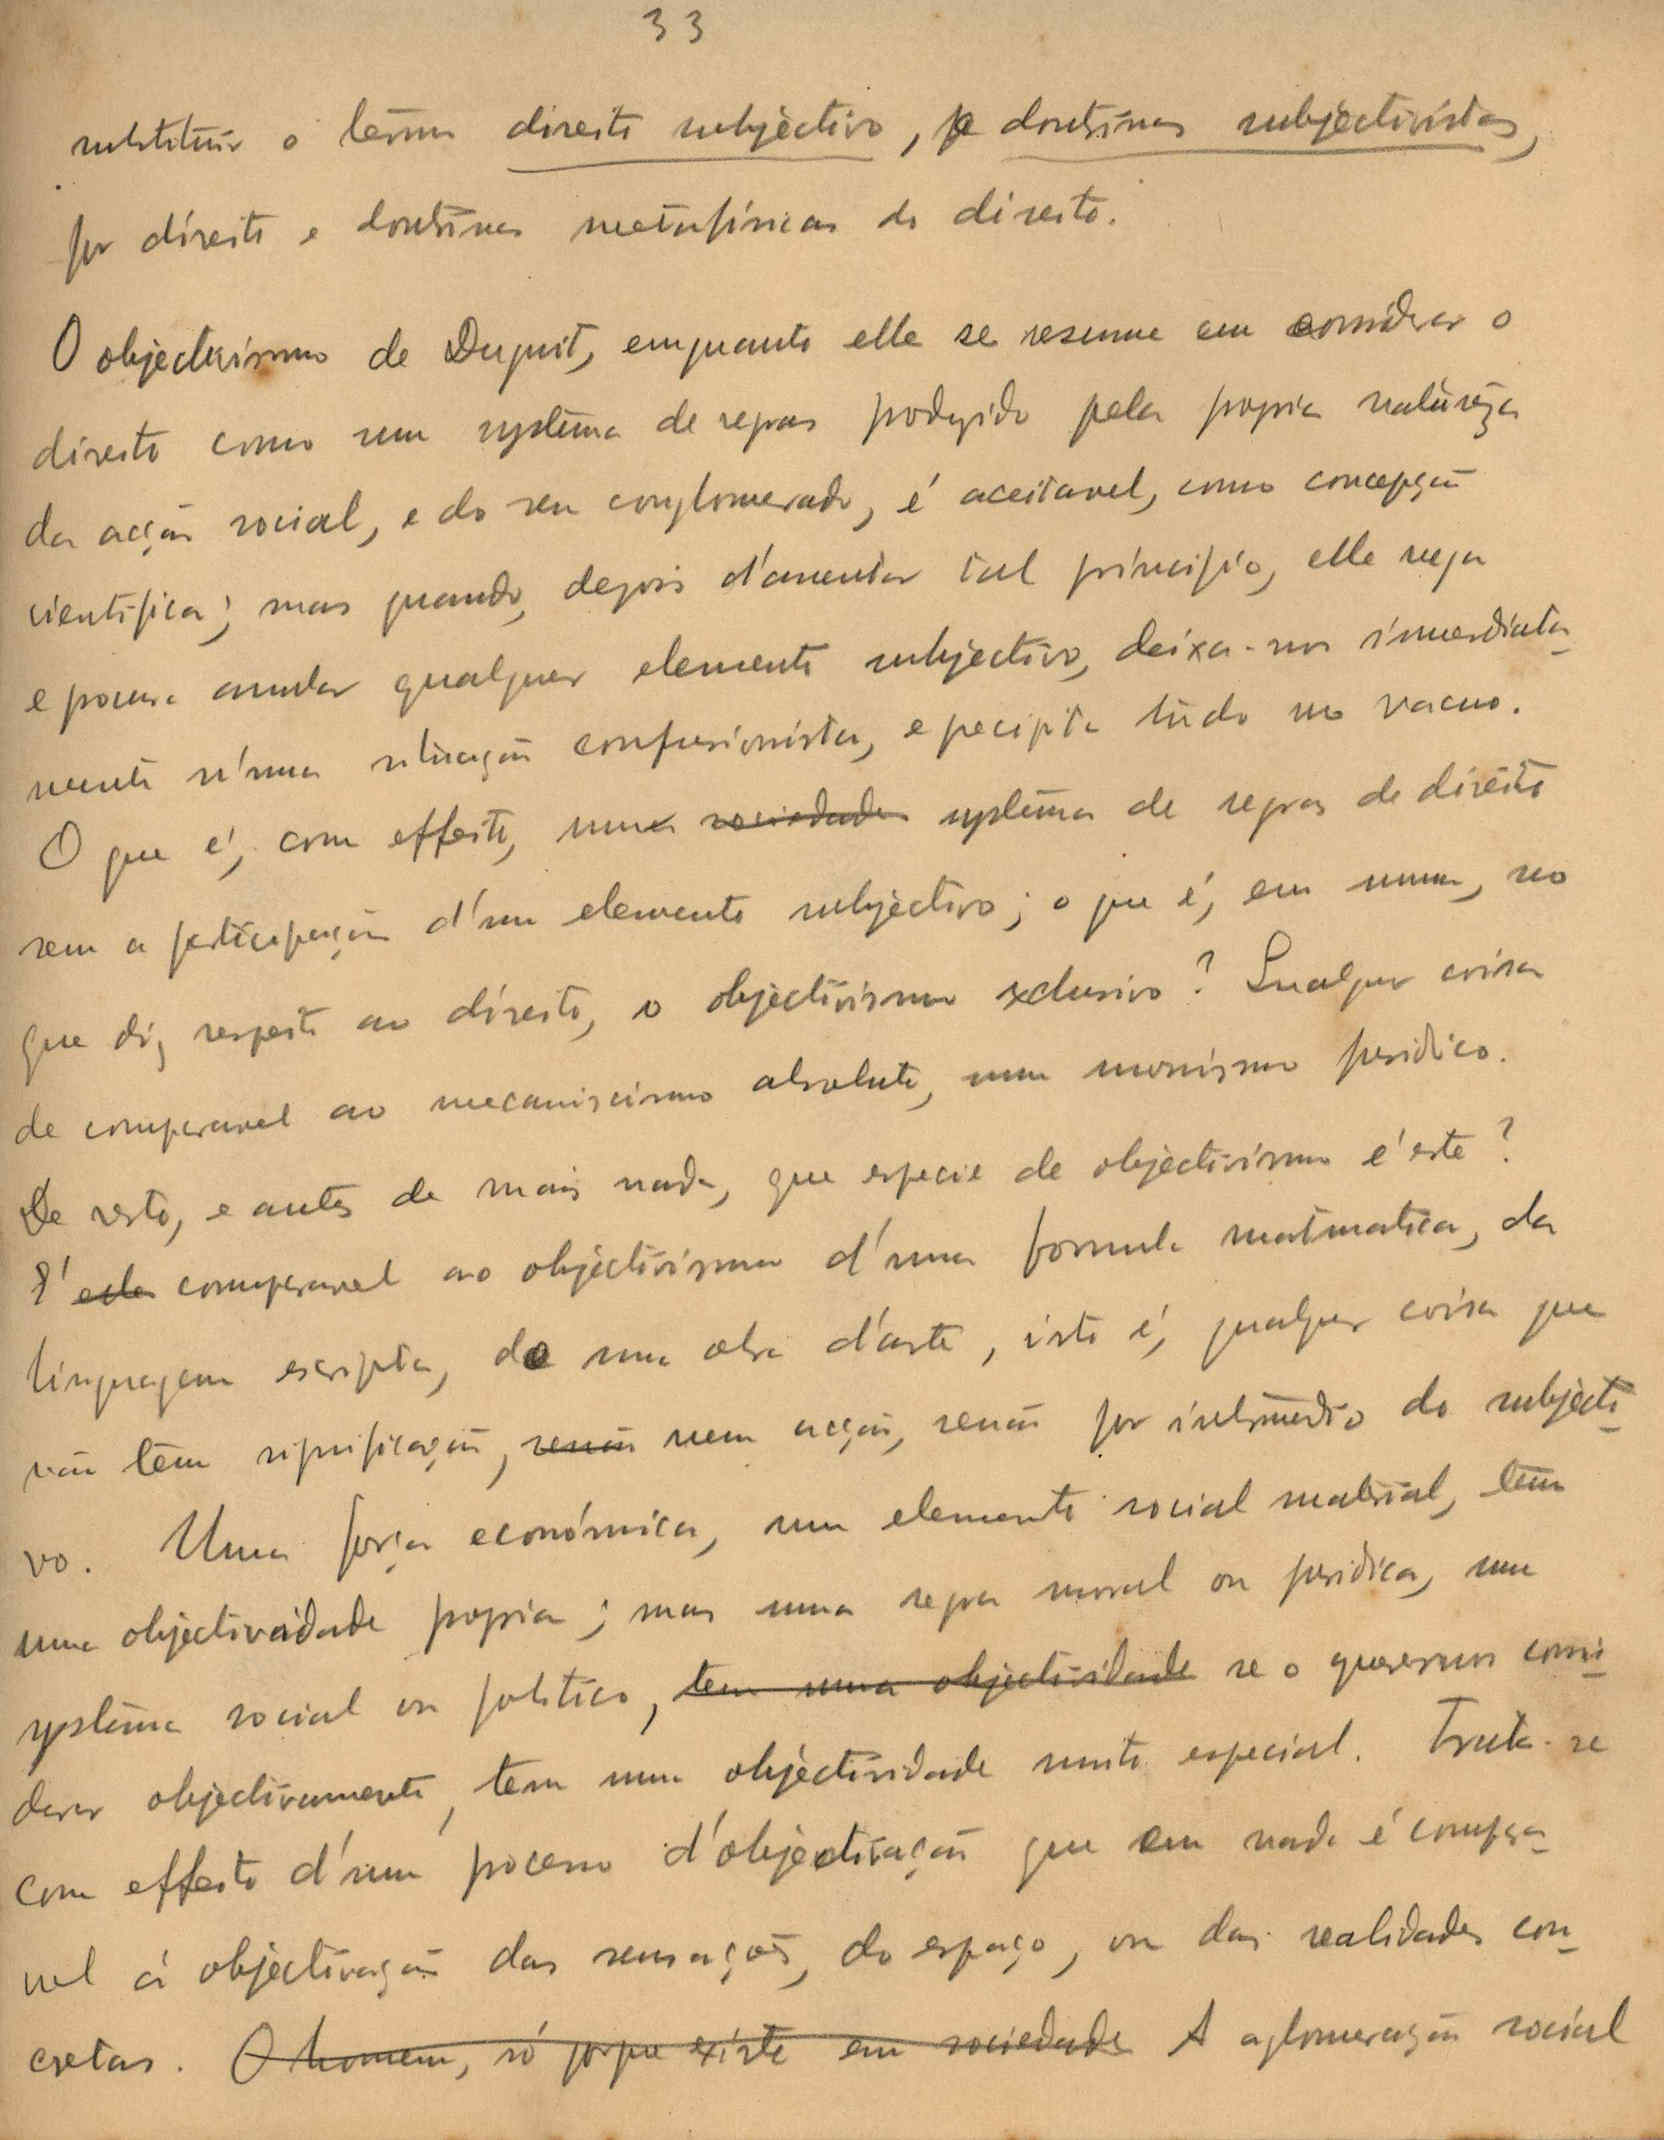 33
substituir o termo direito subjectivo, e doutrinas subjectivistas,
por direito e doutrinas metafísicas do direito.
O objectivismo de Duguit, emquanto elle se resume em considerar o
direito como um systema de regras produzido pela propria natureza
da acção social, e do seu conglomerado, é aceitavel, como concepção
scientifica; mas quando, depois d'assentar tal princípio, elle nega
e procura annular qualquer elemento subjectivo, deixa-nos immediata-
mente n'uma situação confusionista, e precipita tudo no vacuo.
O que é, com effeito, um sociedade systema de regras de direito
sem a participação d'um elemento subjectivo; o que é, em summa, no
que diz respeito ao direito, o objectivismo exclusivo? Qualquer coisa
de comparavel ao mecanicismo absoluto, num monismo juridico.
De resto, e antes de mais nada, que especie de objectivismo é este?
É esta comparavel ao objectivismo d'uma formula matematica, da
linguagem escripta, de uma obra d'arte, isto é, qualquer coisa que
não tem significação, senão nem acção, senão por intermedio do subjecti-
vo. Uma força económica, um elemento social material, tem
uma objectividade propria; mas uma regra moral ou juridica, um
systema social ou politico, tem uma objectividade se o queremos consi-
derar objectivamente, tem uma objectividade muito especial. Trata-se
com effeito d'um processo d'objectivação que em nada é compara-
vel á objectivação das sensações, do espaço, ou das realidades con-
cretas. O homem, só porque existe em sociedade A aglomeração social